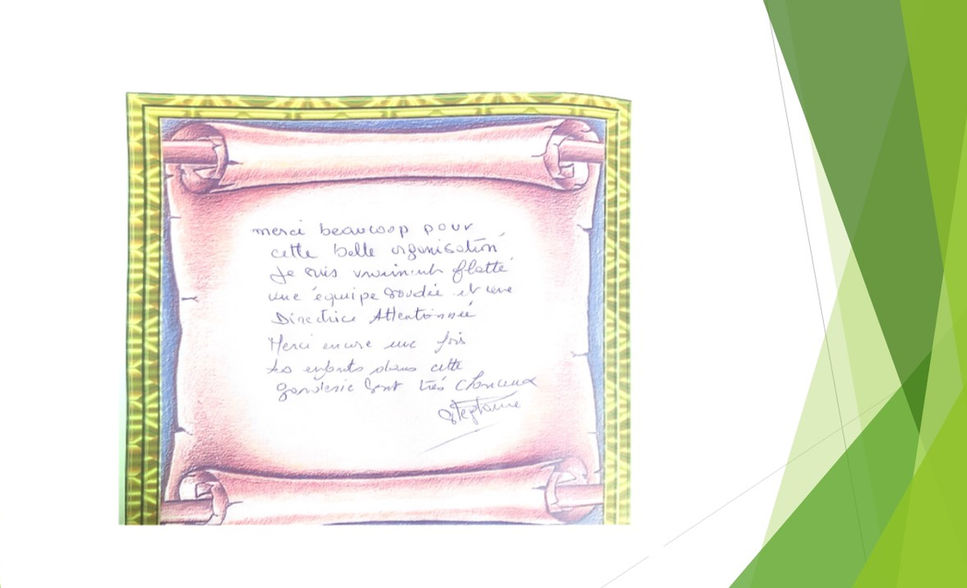 merci beaucoup pour
cette belle organisation
Je suis vraiment flatté
une équipe soudée et une
Directrice Attentionnée
Merci encore une fois
les enfants dans cette
garderie sont très chanceux
Stephanie